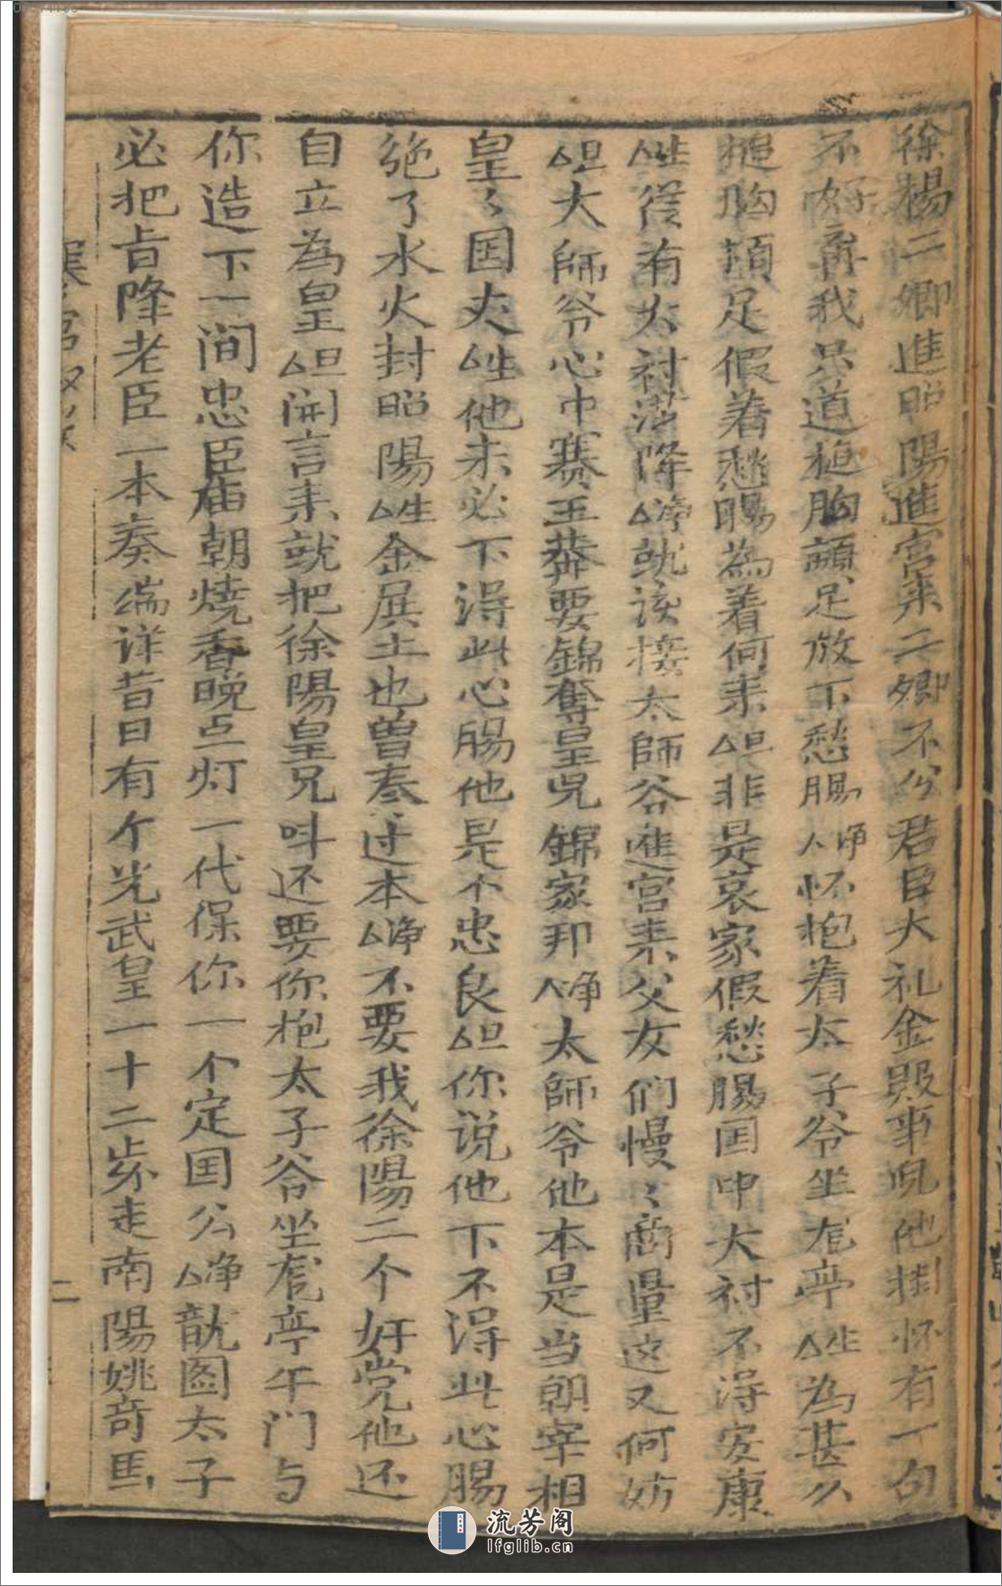 徐楊二卿進昭陽進宮來二卿不分君臣大礼金殿事況他掴怀有一句
不好呑我只道搥胸頓足放下愁腸 净怀抱着太子爷坐龙亭 生為甚么
搥胸頓足假着愁腸為着何来 旦非是哀家假愁腸囯中大衬不淂安康
生從有太衬滿降 净就该接太師爷進宮来父女們慢〻商量这又何妨
旦大師爷心中赛王莽要錦奪皇兄錦家邦 净太師爷他本是当朝宰相
皇〻囯丈 生他未必下淂此心腸他是不忠良 旦你说他下不淂此心腸
絶了水火封昭陽 生金展土也曾奏过本 净不要我徐陽二个奸党他还
自立為皇 旦開言来就把徐陽皇兄呌还要你抱太子爷坐龙亭午门与
你造下一间忠臣庙朝燒香晚点灯一代保你一个定囯公 净説啚太子
必把旨降老臣一本奏端详昔日有个光武皇一十二岁走南陽姚奇馬
二
流芳阁
lfglib.cn